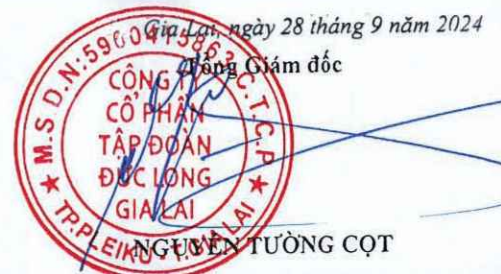 Gia Lai, ngày 28 tháng 9 năm 2024
Tổng Giám đốc
M.S.D.N:5900415863-C.T.C.P
CÔNG TY
CỔ PHẦN
TẬP ĐOÀN
ĐỨC LONG
GIA LAI
TP.PLEIKU - T.GIA LAI
NGUYỄN TƯỜNG CỌT